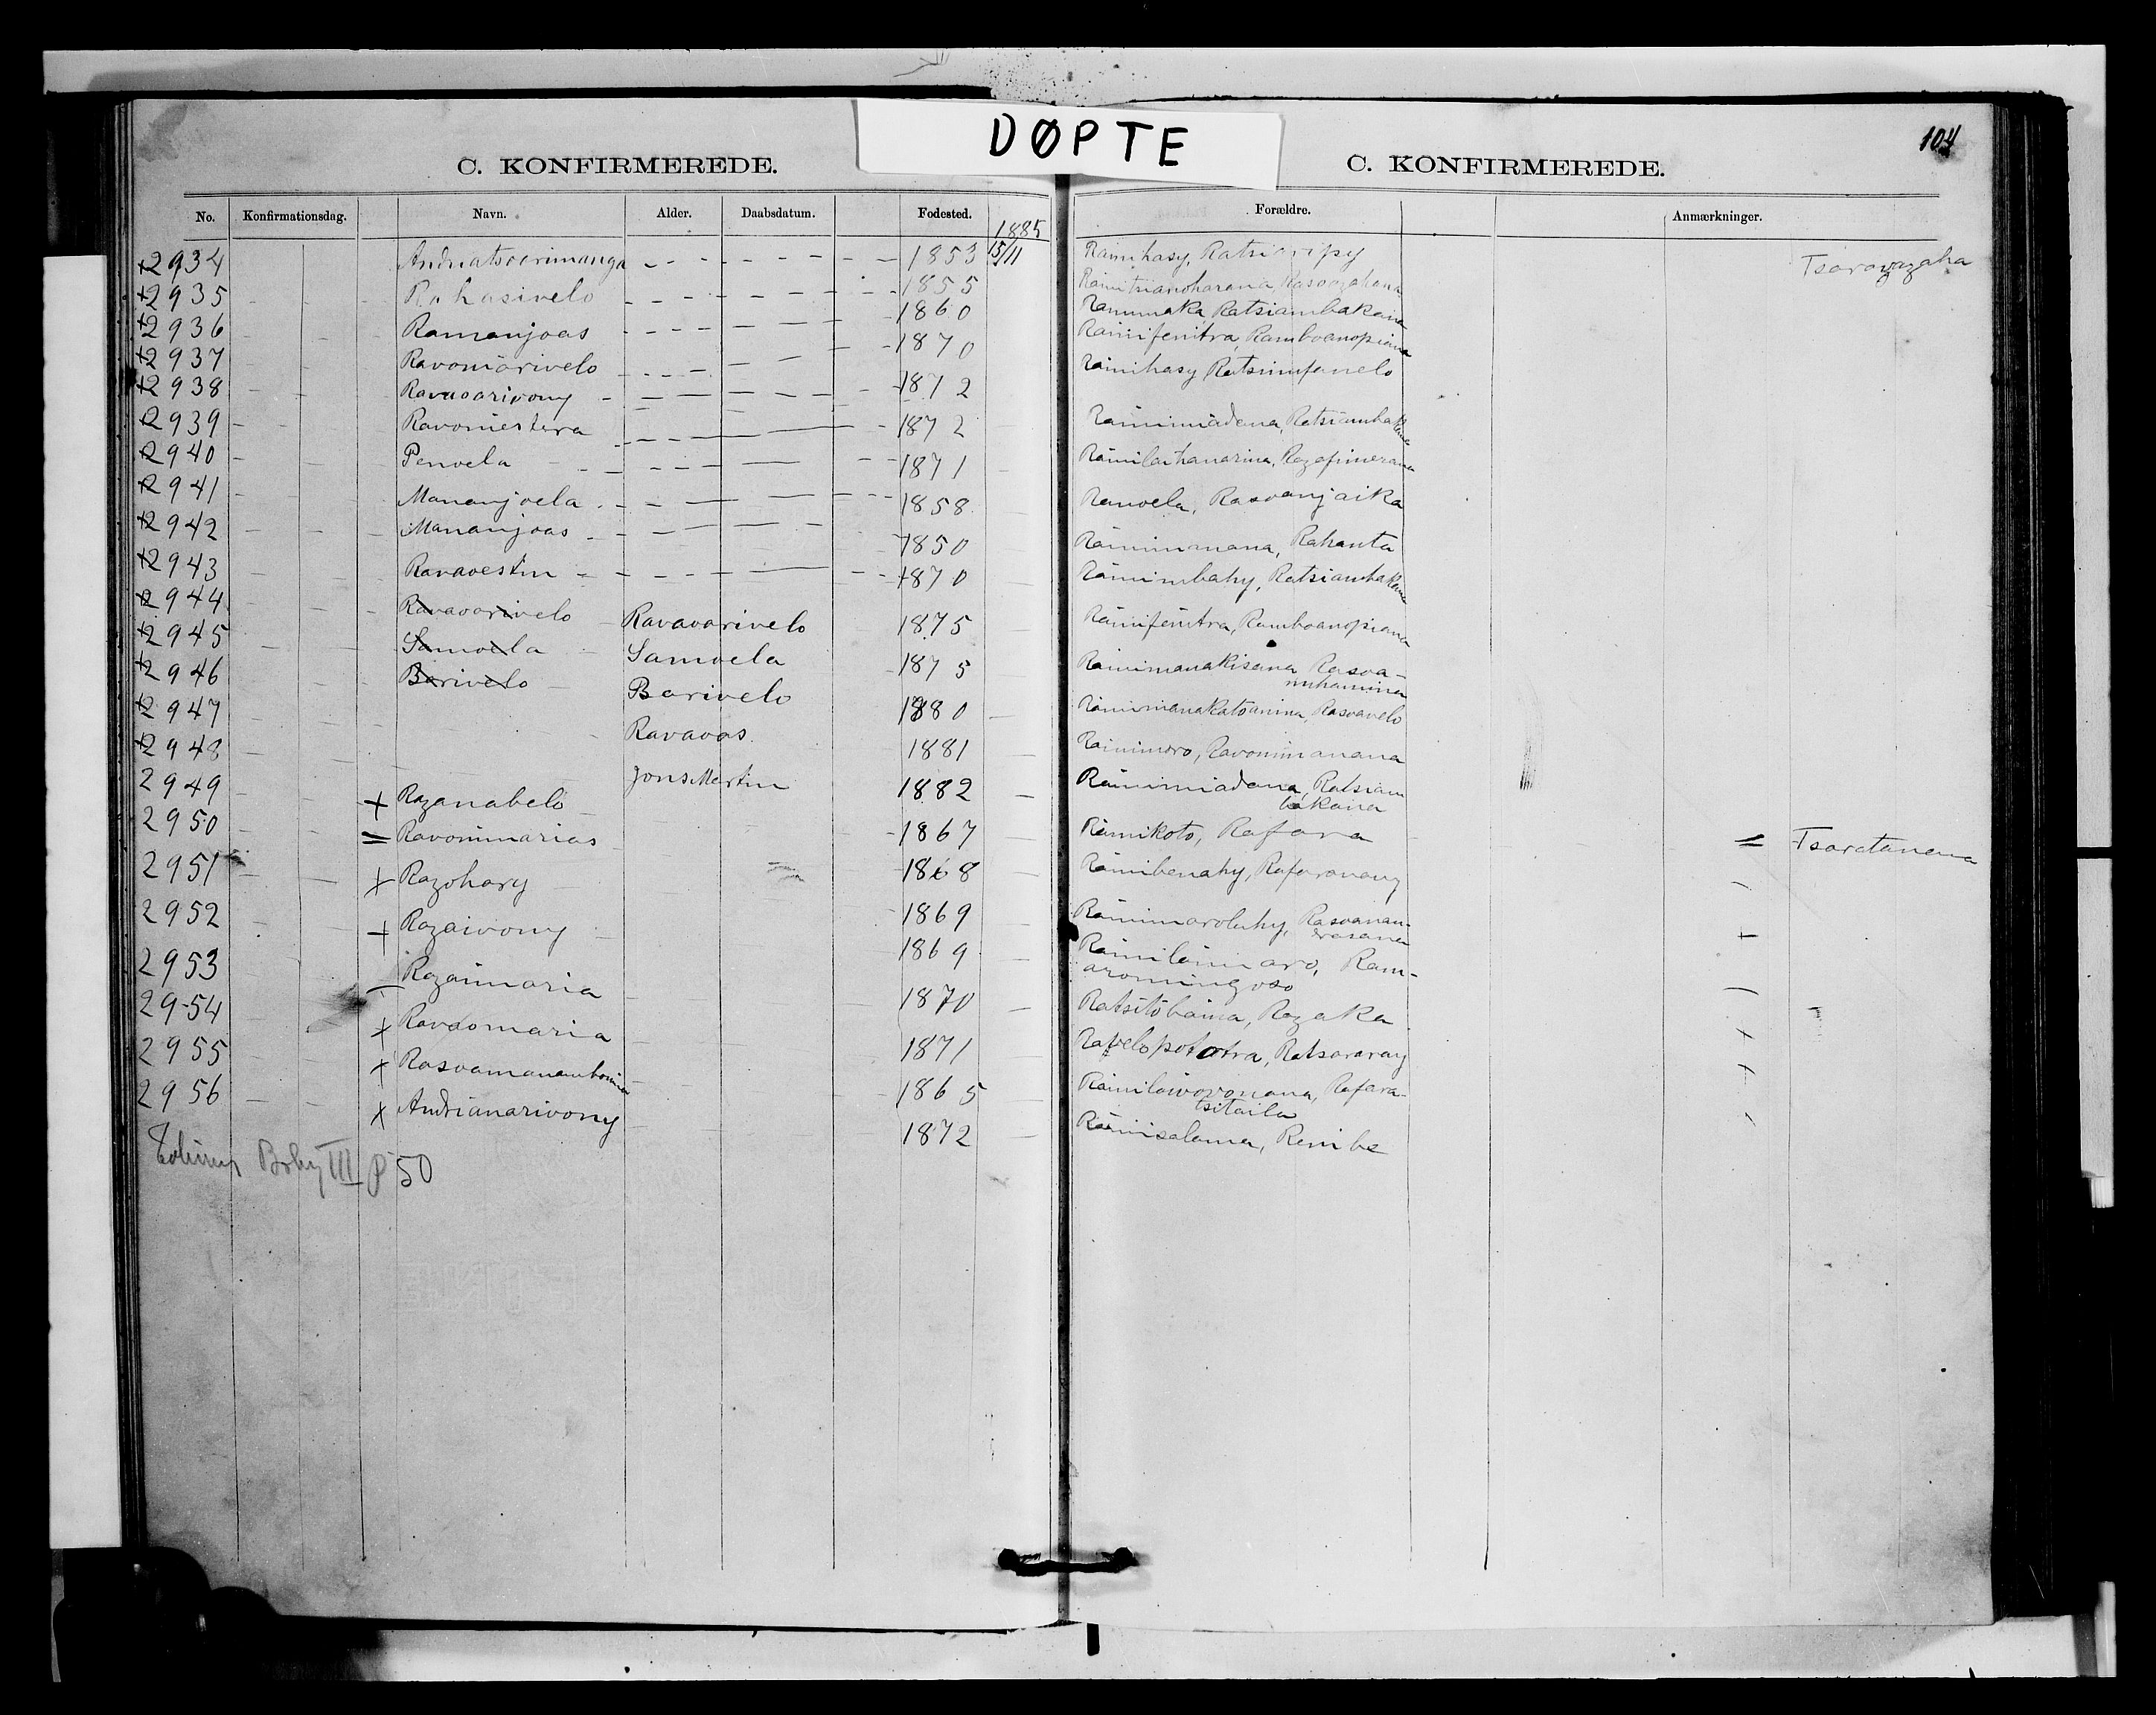 DØPTE
104
C. KONFIRMEREDE.
C. KONFIRMEREDE.
No. Konfirmationsdag. Navn. Alder. Daabsdatum. Fodested. Forældre. Anmærkninger.
1885
15/11
+2934 1853 Rainihasy, Tsaravazaha
+2935 Rahasivelo 1855
+2936 Ramanjoas 1860 Ratsiambakaina
+2937 Ravoniarivelo 1870 Rainifenitra, Ramboanopiana
+2938 Ravaoarivony 1872 Rainihasy, Ratsimifanelo
+2939 Ravoniestera 1872 Rainimiadana, Ratsiambakaina
+2940 Penoela 1871 Razafimerana
+2941 Mananjoela 1858 Ranoela, Rasoanjaika
+2942 Mananjoas 1850 Rainimanana, Rahanta
+2943 Ravaoestin 1870 Rainimbahy, Ratsiambakaina
+2944 Ravaoarivelo Ravaoarivelo 1875 Rainifenitra, Ramboanopiana
+2945 Samoela Samoela 1875 Rainimanakisana Rasoa-
+2946 Barivelo Barivelo 1880 Rasoavelo
+2947 Ravaoas 1881 Rainimoro, Ravonimanana
+2948 Jons Martin 1882 Rainimiadana, Ratsiam
bakaina
2949 + Razanabelo 1867 Rainikoto, Rafara = Tsaratanana
2950 = Ravonimarias 1868 Rainibenahy, Rafaravavy
2951 + Razohary 1869 Rainimarolahy, Rasoanan-
drasana
2952 + Razaivony 1869 Ram-
aromingoso
2953 Razaimaria 1870 Ratsitobaina, Razaka
2954 + Ravaomaria 1871 Ravelopototra, Ratsararay
2955 + Rasoamanambonina 1865 Rainilaivovonana, Rafara-
tsitaila
2956 + Andrianarivony 1872 Rainisalama, Renibe
III p 50